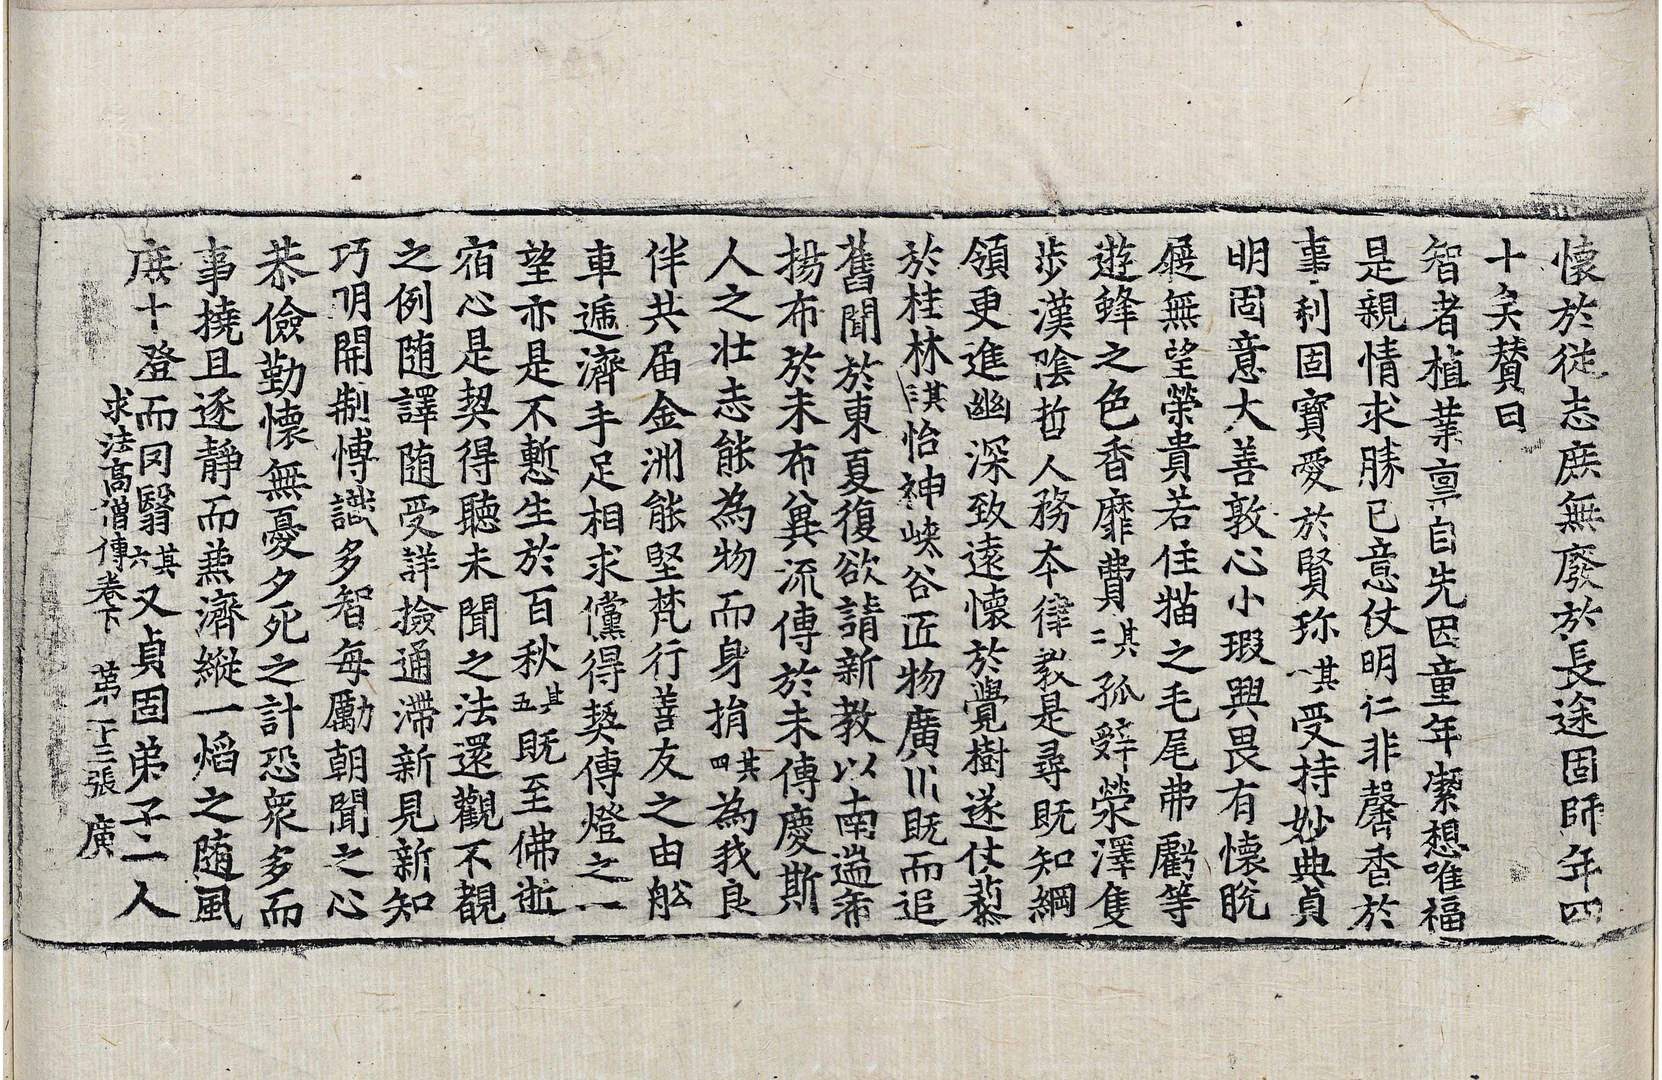 懷於徒志庶無廢於長途固師年四
十矣賛曰
智者植業禀自先因童年潔想唯福
是親情求勝已意仗明仁非馨香於
事利固寶愛於賢珎其一受持妙典貞
明固意大善敦心小瑕興畏有懷脫
屣無望榮貴若住猫之毛尾弗虧等
遊蜂之色香靡費其二孤辤榮澤隻
步漢陰哲人務本律教是尋既知綱
領更進幽深致遠懷於覺樹遂仗藜
於桂林其三怡神峽谷匠物廣川既而追
舊聞於東夏復欲請新教以南遄希
揚布於未布兾流傳於未傳慶斯
人之壮志能為物而身捐其四為我良
伴共届金洲能堅梵行善友之由舩
車遞濟手足相求儻得契傳燈之一
望亦是不慙生於百秋其五既至佛逝
宿心是契得聽未聞之法還觀不覩
之例随譯随受詳撿通滯新見新知
巧明開制博識多智每勵朝聞之心
恭儉勤懷無憂夕死之計恐衆多而
事撓且逐靜而兼濟縱一焰之随風
庶十燈而冈翳其六又貞固弟子一人
求法高僧傳卷下　第十三張　廣